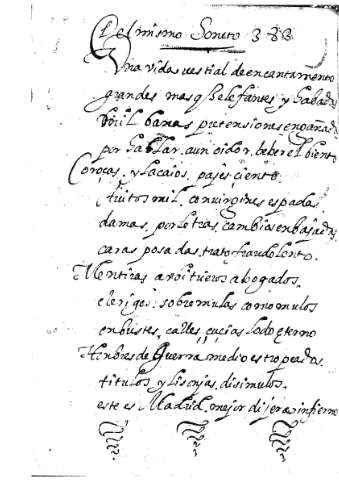 Del mismo Soneto 388
Una vida vestial de encantamento
grandes mas q belefantes y habadas
mil banas pretensiones engañadas
por hablar aun oidor, beber el biento
Coroças, y lacaios, pajes ciento
auitos mil, con virgines espadas
damas, parleras, cambios enbajadas,
caras posadas, trato fraudolento.
Mentiras arbitrieros abogados,
clerigos sobre mulas como mulos
enbustes, calles çuçias lodo eterno
Honbres de Guerra medio estropeados
titulos y lisonjas, disimulos.
este es Madrid, mejor dijera infierno